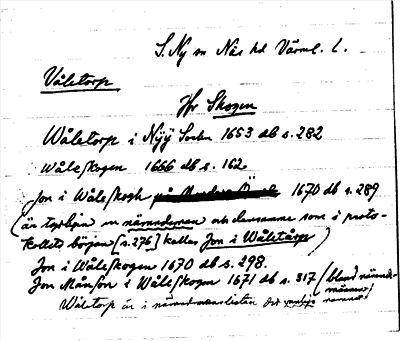 S. Ny sn Näs hd Värml. l.
Våletorp
Jfr Skogen
Wåletorp i Nyÿ Sochn 1653 db s. 282
Wåleskogen 1666 db s. 162
Jon i Wåleskogh 1670 db s. 289
(är tydligen en nämndeman och densamme som i proto-
kollets början [s. 276] kallas Jon i Wåletårp)
Jon i Wåleskogen 1670 db s. 298.
Jon Månson i Wåleskogen 1671 db s. 317 (bland nämnde-
männen)
Wåletorp är i nämndemanslistan det vanliga namnet